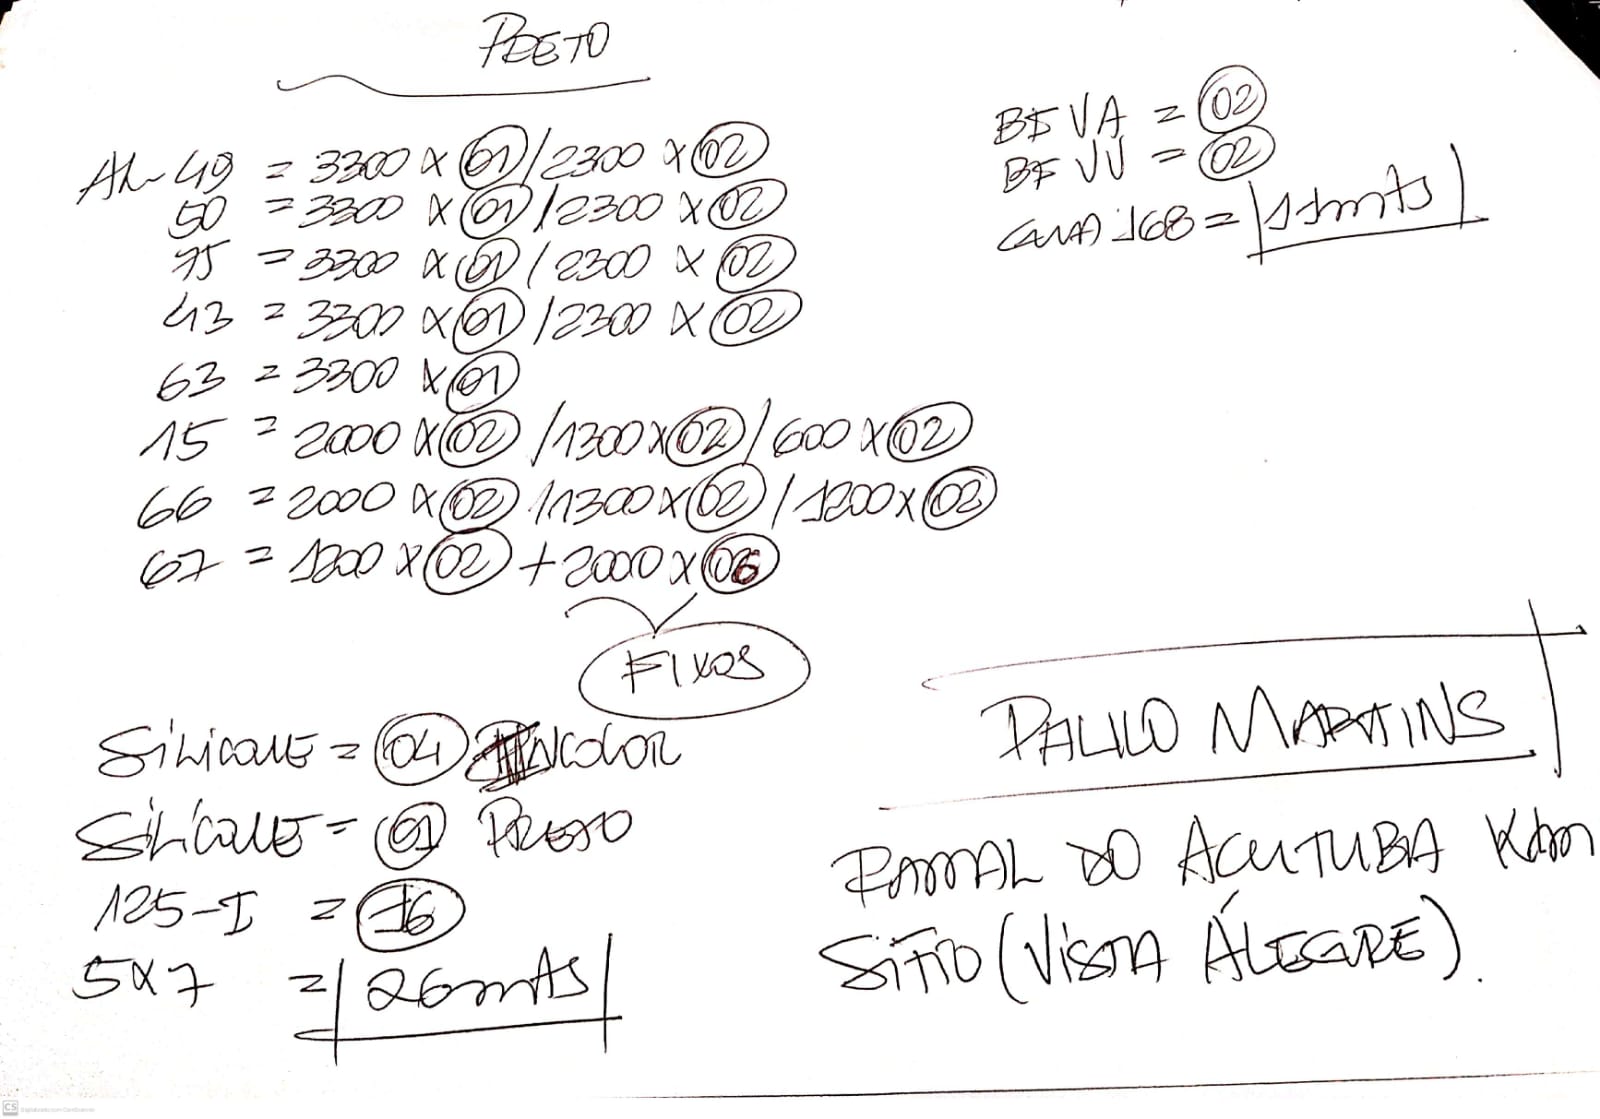 PRETO
AL-49 = 3300 x 01 / 2300 x 02
50 = 3300 x 01 / 2300 x 02
75 = 3300 x 01 / 2300 x 02
43 = 3300 x 01 / 2300 x 02
63 = 3300 x 01
15 = 2000 x 02 / 1300 x 02 / 600 x 02
66 = 2000 x 02 / 1300 x 02 / 1200 x 02
67 = 1200 x 02 + 2000 x 06
FIXOS
SILICONE = 04 INCOLOR
SILICONE = 01 PRETO
125-I = 16
5x7 = 26mts
BF VA = 02
BF VV = 02
168 = 11mts
PAULO MARTINS
RAMAL DO ACUTUBA
SÍTIO (VISTA ALEGRE).
CS Digitalizado com CamScanner